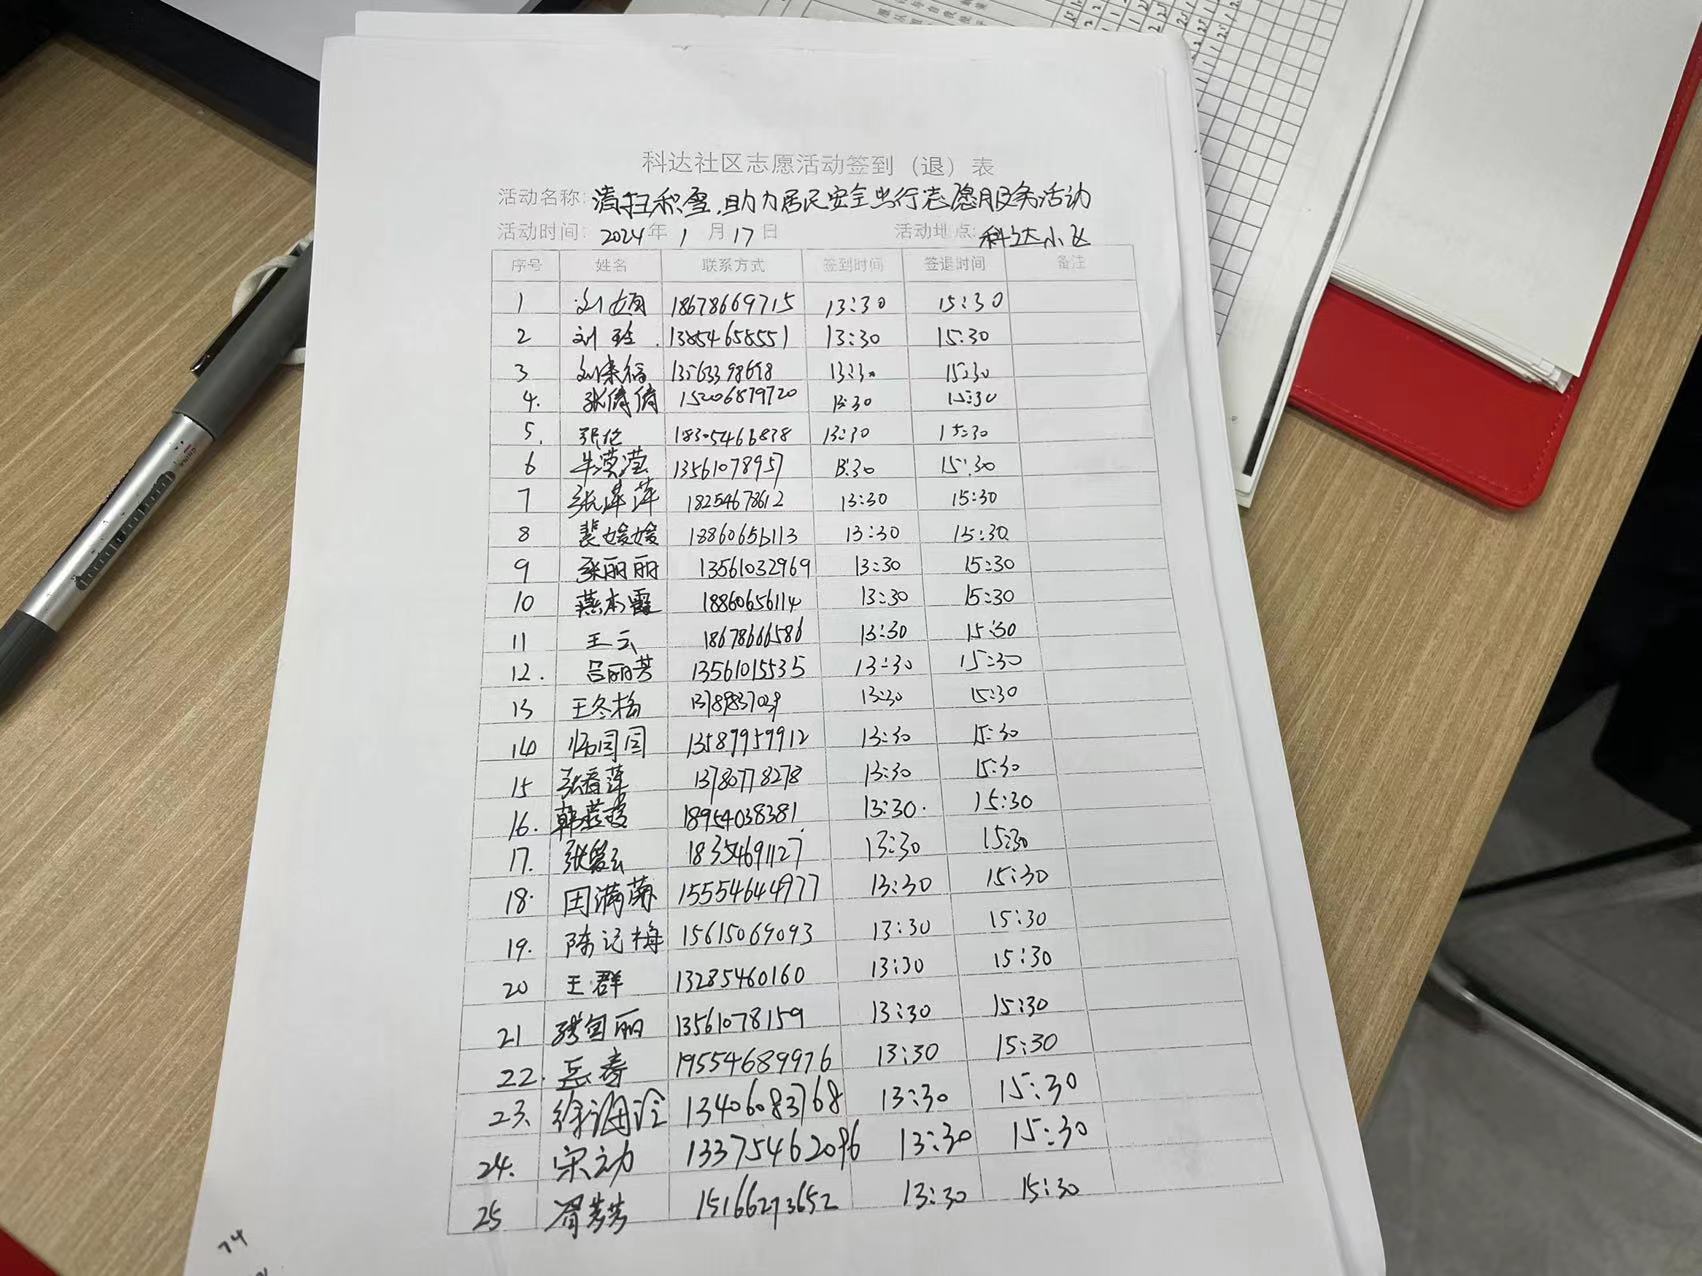 科达社区志愿活动签到（退）表
活动名称：清扫积雪，助力居民安全出行志愿服务活动
活动时间：2024年1月17日 活动地点：科达小区
序号 姓名 联系方式 签到时间 签退时间 备注
1 刘 18678669715 13:30 15:30
2 刘玲 13854658551 13:30 15:30
3 刘来福 13563398698 13:30 15:30
4. 张倩倩 15206879720 13:30 15:30
5. 张伦 18305466838 13:30 15:30
6 牛滢滢 13561078957 13:30 15:30
7 张萍萍 18254678612 13:30 15:30
8 裴媛媛 18860656113 13:30 15:30
9 张丽丽 13561032969 13:30 15:30
10 燕本霞 18860656114 13:30 15:30
11 王云 18678666586 13:30 15:30
12. 吕丽芳 13561015535 13:30 15:30
13 王冬梅 13:30 15:30
14 13587959912 13:30 15:30
15 张春萍 13780778278 13:30 15:30
16. 韩 18954038381 13:30. 15:30
17. 张爱云 18354691127 13:30 15:30
18. 田满菊 15554644977 13:30 15:30
19. 陈记梅 15615069093 13:30 15:30
20 王群 13285460160 13:30 15:30
21 丽 13561078159 13:30 15:30
22. 岳寿 19554689976 13:30 15:30
23. 徐 13406083768 13:30 15:30
24. 宋动 13375462096 13:30 15:30
25 胥芳芳 15166273652 13:30 15:30
74